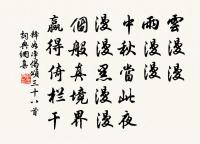 雲漫漫
雨漫漫
中秋當此夜
漫漫黑漫漫
個般真境界
贏得倚栏干
釋如净偈頌三十八首
詞典網集